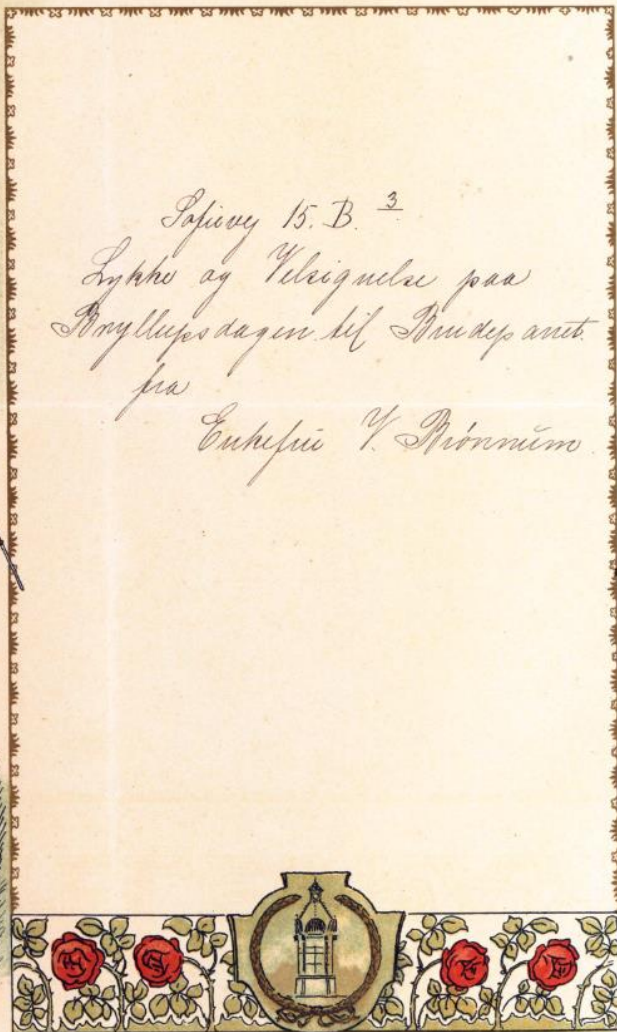 Sofievej 15. B. 3
Lykke og Velsignelse paa
Bryllupsdagen til Brudeparret
fra
Enkefru V. Brønnum